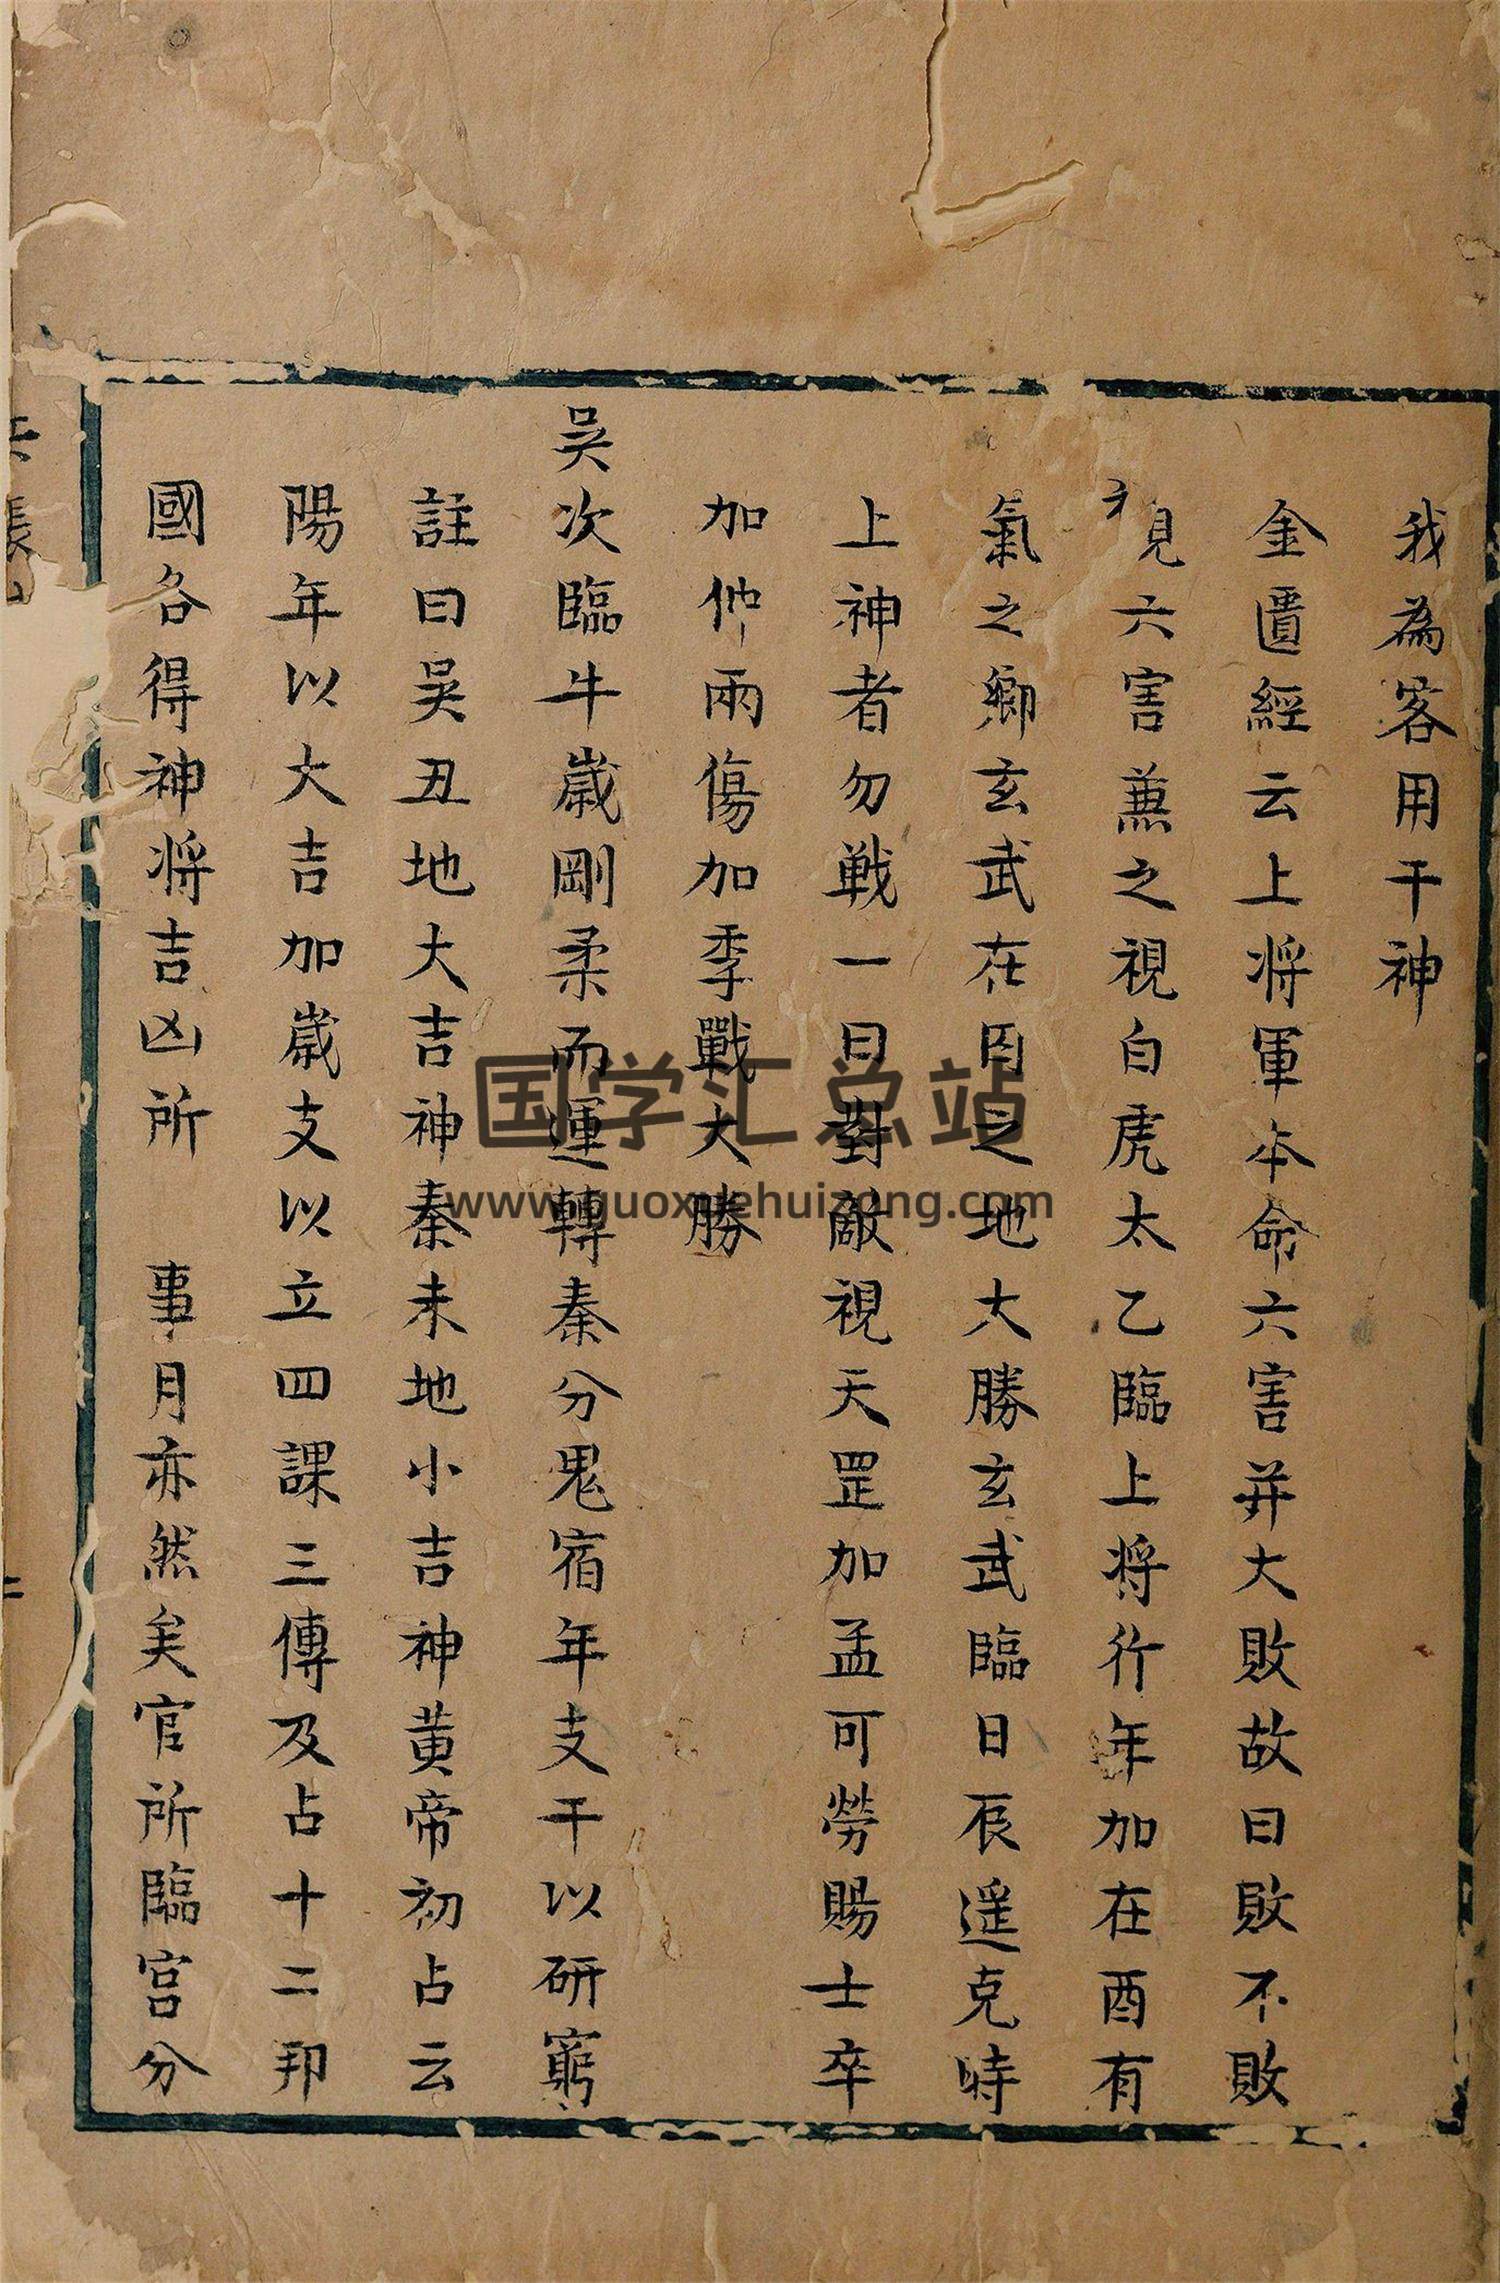 我為客用干神
金匱經云上将軍本命六害并大敗故曰敗不敗
視六害兼之視白虎太乙臨上将行年加在酉有
氣之鄉玄武在囚之地大勝玄武臨日辰遥克時
上神者勿戰一曰對敵視天罡加孟可勞賜士卒
加仲兩傷加季戰大勝
吴次臨牛歲剛柔而運轉秦分鬼宿年支干以研窮
註曰吴丑地大吉神秦未地小吉神黄帝初占云
陽年以大吉加歲支以立四課三傳及占十二邦
國各得神将吉凶所 事月亦然矣官所臨宫分
国学汇总站
www.guoxuehuizong.com